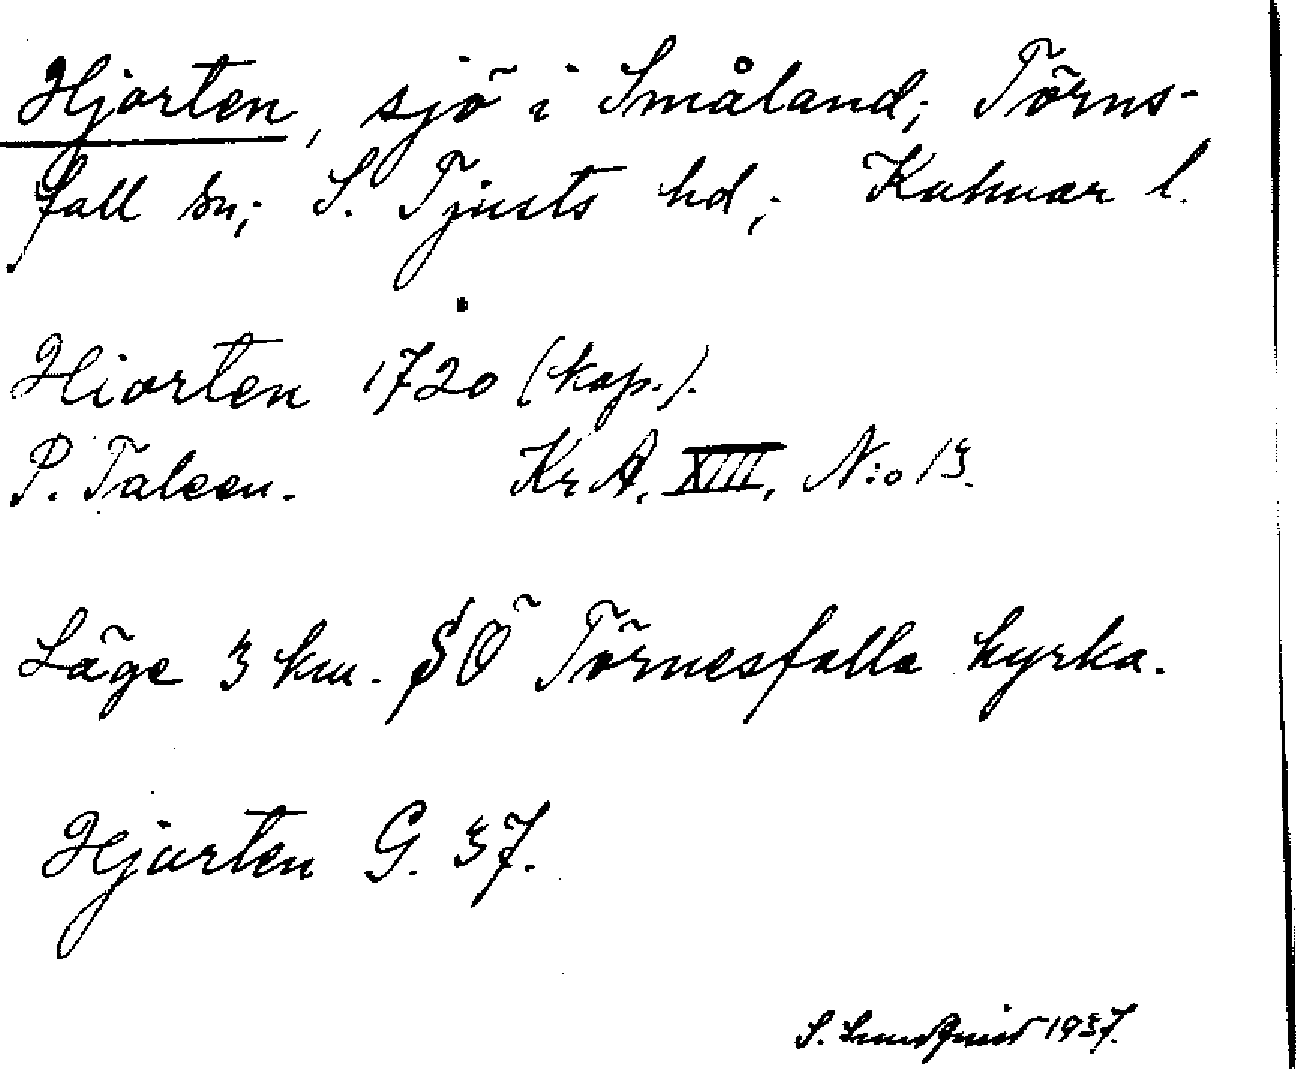 Hjorten, sjö i Småland; Törns-
fall sn; S. Tjusts hd; Kalmar l.
Hiorten 1720 (kop.).
P. Taleen. Kr A, XIII, N:o 13.
Läge 3 km. SÖ Törnesfalla kyrka.
Hjorten G. 37.
S. Lundqvist 1937.